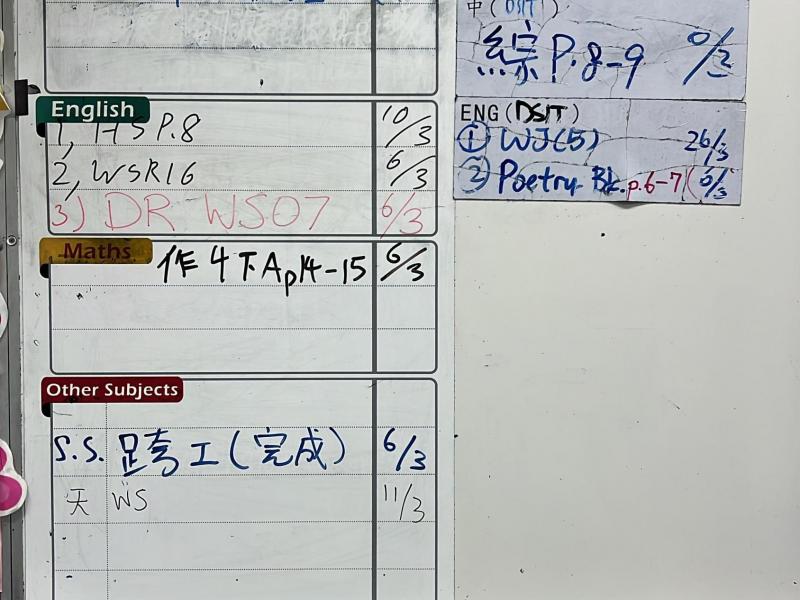 English
1, HS P.8 10/3
2, WSR16 6/3
3) DR WS07 6/3
Maths
作 4下A p14-15 6/3
Other Subjects
S.S. 跨工(完成) 6/3
天 WS 11/3
中(DSIT)
綜 P.8-9
ENG(DSIT)
① WJ(5) 26/3
② Poetry Bk. p.6-7 (6/3